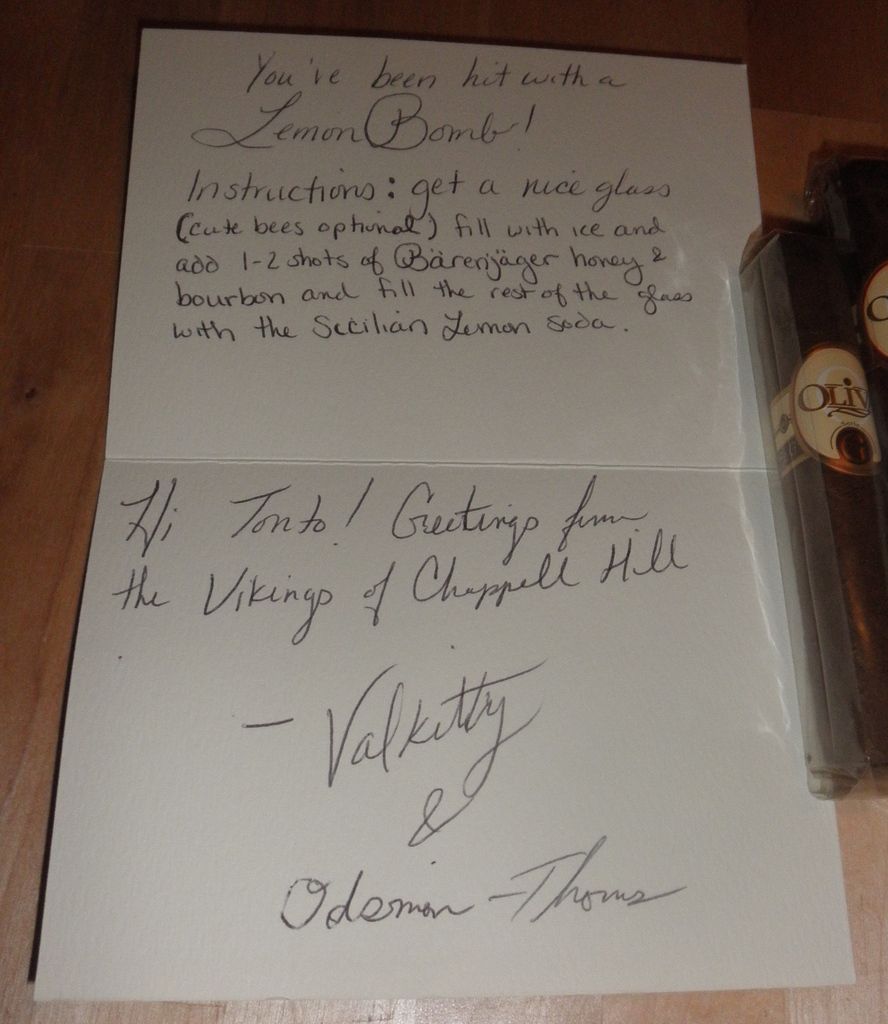 You've been hit with a
Lemon Bomb!
Instructions: get a nice glass
(cute bees optional) fill with ice and
add 1-2 shots of Bärenjäger honey &
bourbon and fill the rest of the glass
with the Secilian Lemon Soda.
Hi Tonto! Greetings from
the Vikings of Chappell Hill
— Valkitty
&
Odsmon-Thoms
OLIV
G